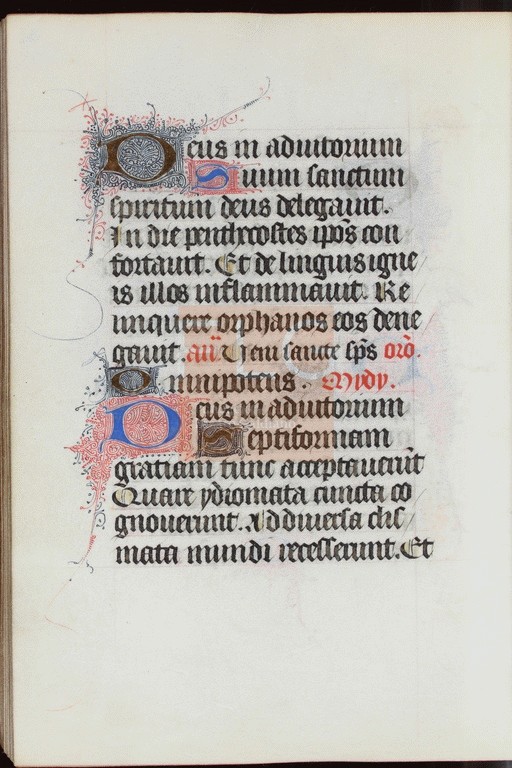 Deus in adiutorium
Suum sanctum
spiritum deus delegauit.
In die penthecostes ipo̅s con
fortauit. Et de linguis igne
is illos inflammauit. Re
linquere orphanos eos dene
gauit. an̅ Veni sancte sp̅s oro̅.
Omnipotens. Mydy.
Deus in adiutorium
Septiformam
gratiam tunc acceptaueru̅t
Quare ydiomata cuncta co
gnouerunt. Ad diuersa clis
mata mundi recesserunt. Et